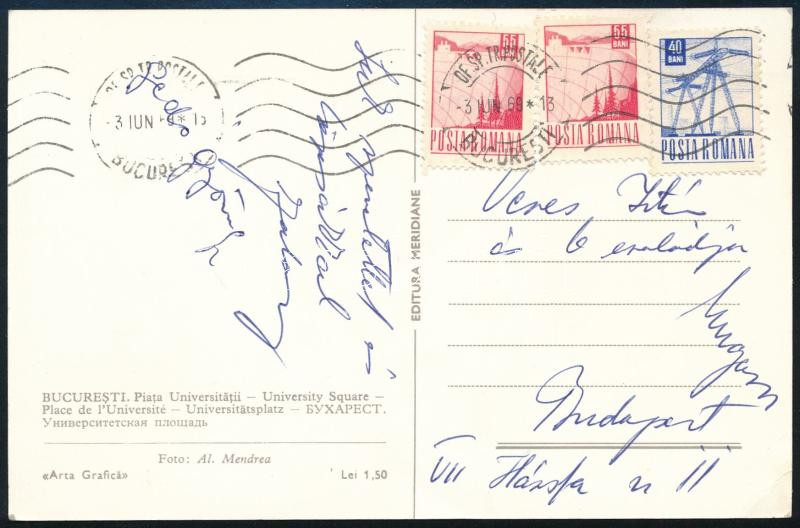 OF. SP. TR. POSTALE
-3 IUN 69 * 13
BUCUREȘTI
55 BANI
POSTA ROMANA
55 BANI
POSTA ROMANA
40 BANI
POSTA ROMANA
OF. SP. TR. POSTALE
-3 IUN 69 * 13
BUCUREȘTI
Sok szeretettel és
EDITURA MERIDIANE
Veres
és b családja
Budapest
VII Hársfa u 11
BUCUREȘTI. Piața Universității — University Square —
Place de l'Université — Universitätsplatz — БУХАРЕСТ.
Университетская площадь
Foto: Al. Mendrea
«Arta Grafică» Lei 1,50